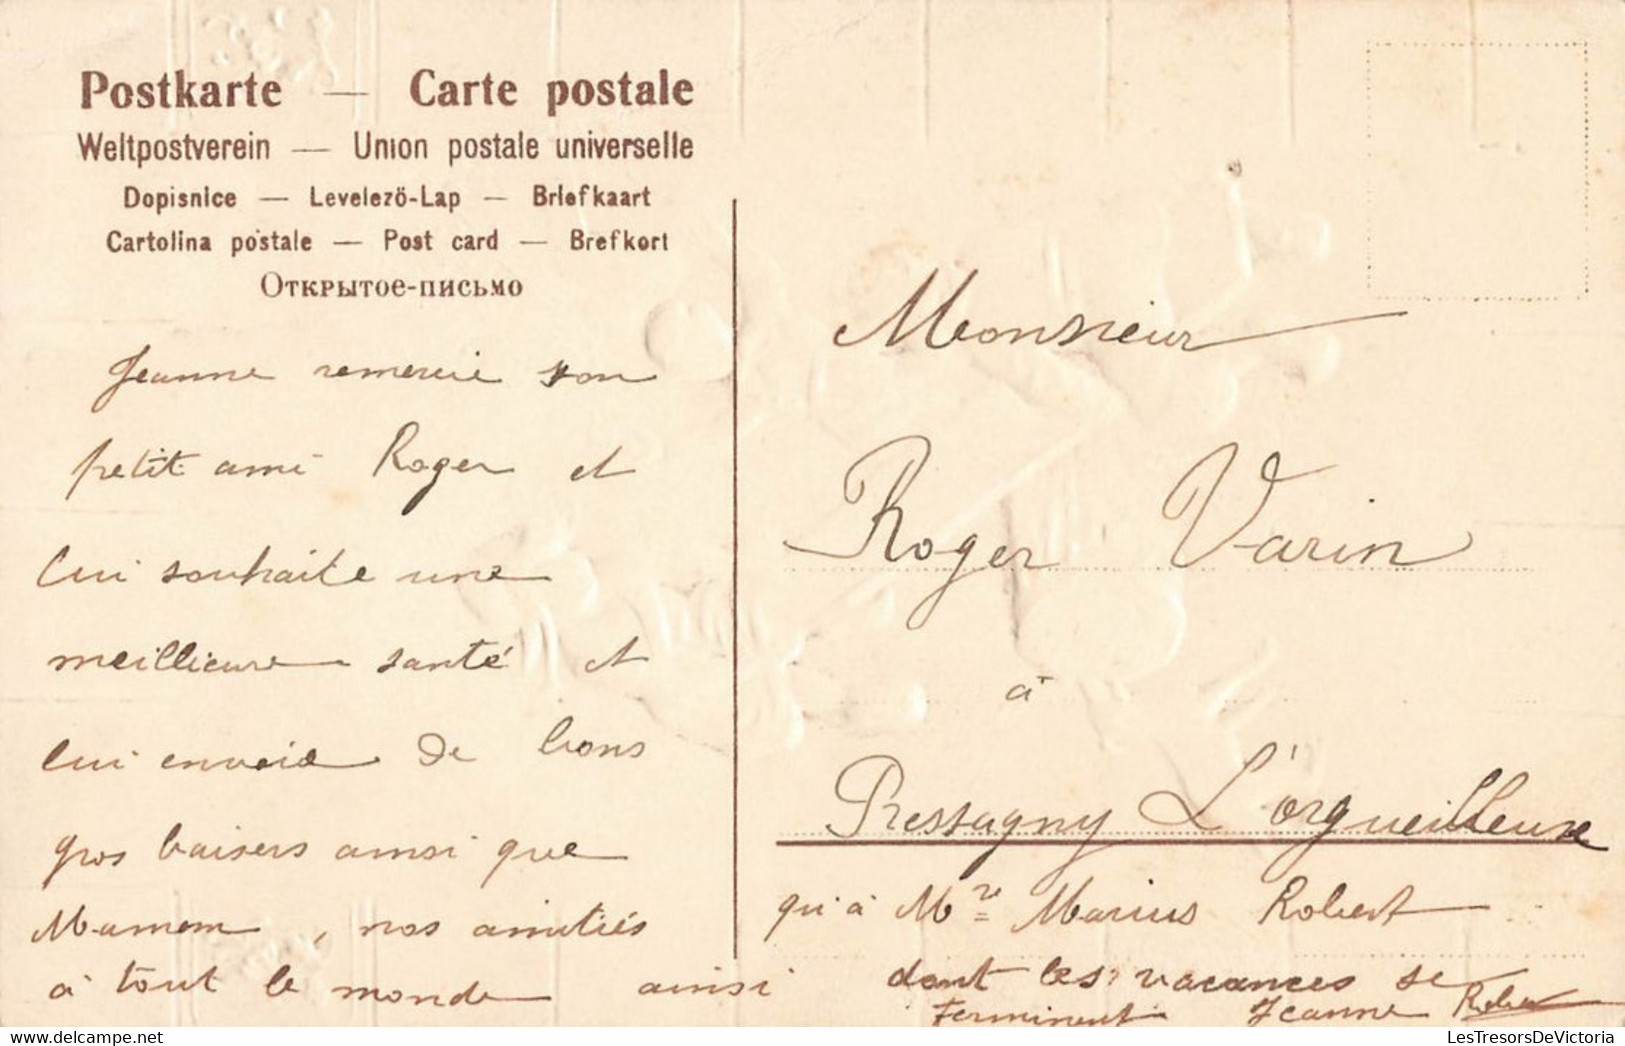 Postkarte — Carte postale
Weltpostverein — Union postale universelle
Dopisnice — Levelezö-Lap — Briefkaart
Cartolina postale — Post card — Brefkort
Открытое-письмо
Jeanne remercie son
petit ami Roger et
lui souhaite une
meillieure santé et
lui envoie de bons
gros baisers ainsi que
Maman, nos amitiés
à tout le monde ainsi
qu'à Mre Marius Robert
dont les vacances se
Terminent Jeanne Robert
Monsieur
Roger Varin
à
Pressagny L'orgueilleuse
LesTresorsDeVictoria